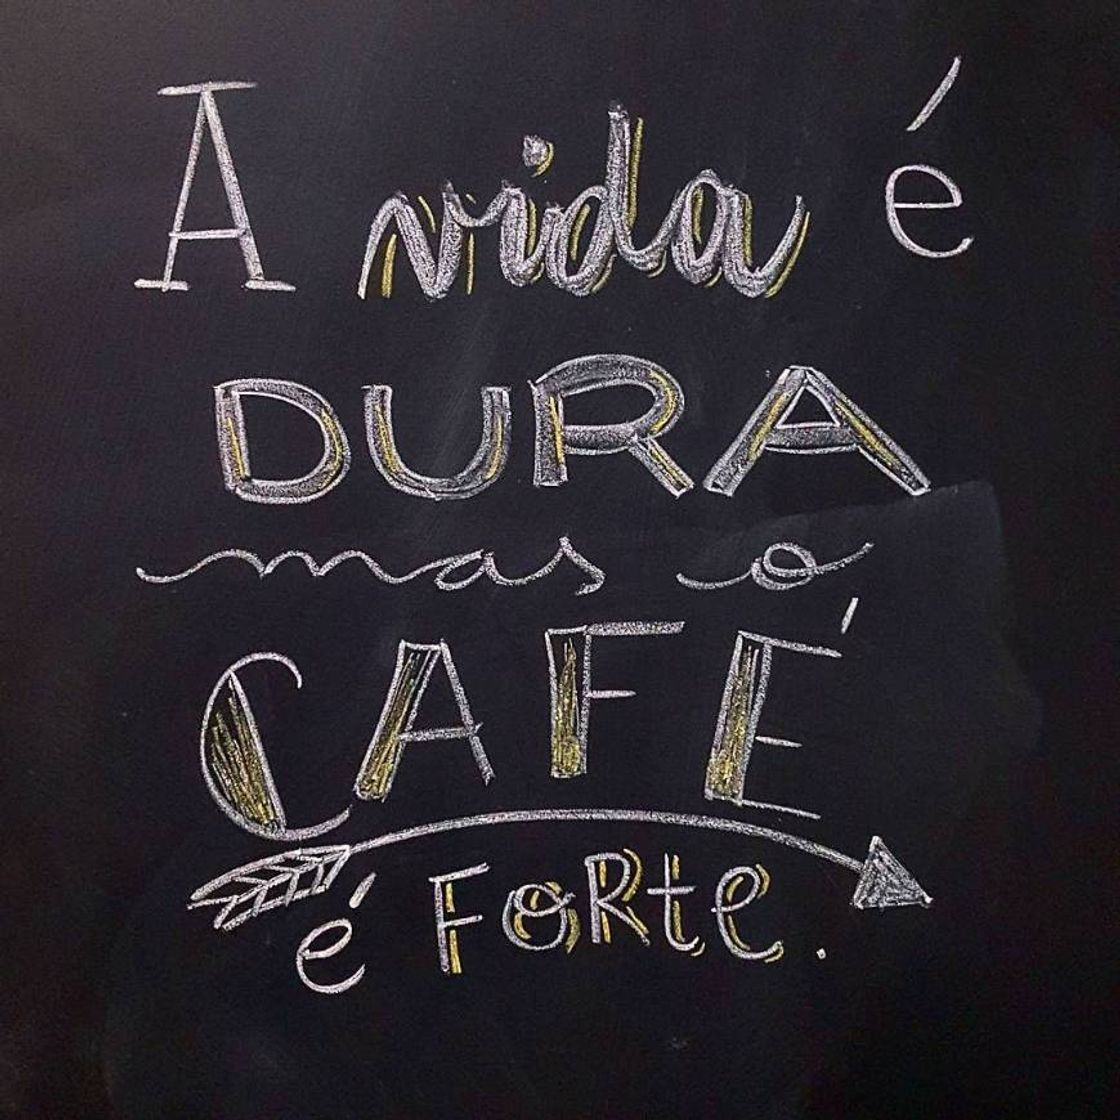 A vida é
DURA
mas o
CAFÉ
é FoRte.